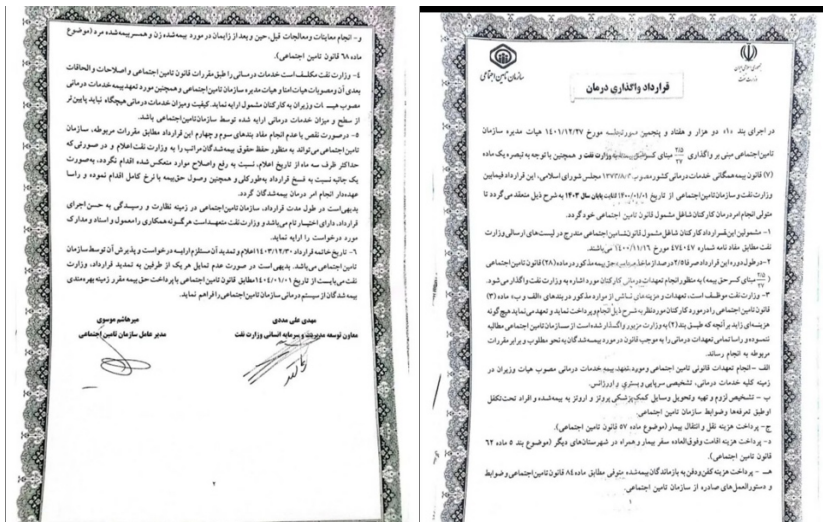 جمهوری اسلامی ایران
وزارت نفت
سازمان تأمین اجتماعی
قرارداد واگذاری درمان
در اجرای بند «۱۰» دو هزار و هفتاد و پنجمین صورتجلسه مورخ ۱۴۰۱/۱۲/۲۷ هیات مدیره سازمان
تامین اجتماعی مبنی بر واگذاری ۲/۵/۲۷ مبنای کسر حق بیمه به وزارت نفت و همچنین با توجه به تبصره یک ماده
(۷) قانون بیمه همگانی خدمات درمانی کشور مصوب ۱۳۷۳/۸/۳ مجلس شورای اسلامی، این قرارداد فیمابین
وزارت نفت و سازمان تامین اجتماعی از تاریخ ۱۴۰۰/۰۱/۰۱ لغایت پایان سال ۱۴۰۳ به شرح ذیل منعقد می گردد تا
متولی انجام امر درمان کارکنان شاغل مشمول قانون تامین اجتماعی خود گردد.
۱- مشمولین این قرارداد کارکنان شاغل مشمول قانون تامین اجتماعی مندرج در لیست های ارسالی وزارت
نفت مطابق مفاد نامه شماره ۴۷۴۰۴۷ مورخ ۱۴۰۰/۱۱/۱۶ می باشند.
۲- در طول دوره این قرارداد صرفا ۲/۵ درصد از ماخذ محاسبه حق بیمه مذکور در ماده (۲۸) قانون تامین اجتماعی
(۲/۵/۲۷ مبنای کسر حق بیمه) به منظور انجام تعهدات درمانی کارکنان مورد اشاره به وزارت نفت واگذار می شود.
۳- وزارت نفت موظف است، تعهدات و هزینه های ناشی از موارد مذکور در بندهای «الف و ب» ماده (۳)
قانون تامین اجتماعی را در مورد کارکنان مورد نظر به شرح ذیل انجام و پرداخت نماید و تعهد می نماید هیچ گونه
هزینه ای زاید بر آنچه که طبق بند (۲) به وزارت مزبور واگذار شده است از سازمان تامین اجتماعی مطالبه
ننموده و راسا تمامی تعهدات درمانی را به موجب قانون در مورد بیمه شدگان به نحو مطلوب و برابر مقررات
مربوطه به انجام رساند.
الف - انجام تعهدات قانونی تامین اجتماعی و مورد تعهد بیمه خدمات درمانی مصوب هیات وزیران در
زمینه کلیه خدمات درمانی، تشخیصی سرپایی و بستری و اورژانس.
ب - تشخیص لزوم و تهیه و تحویل وسایل کمک پزشکی پروتز و اروتز به بیمه شده و افراد تحت تکفل
او طبق تعرفه ها و ضوابط سازمان تامین اجتماعی.
ج- پرداخت هزینه نقل و انتقال بیمار (موضوع ماده ۵۷ قانون تامین اجتماعی).
د- پرداخت هزینه اقامت و فوق العاده سفر بیمار و همراه در شهرستان های دیگر (موضوع بند ۵ ماده ۶۲
قانون تامین اجتماعی).
هـ - پرداخت هزینه کفن و دفن به بازماندگان بیمه شده متوفی مطابق ماده ۸۴ قانون تامین اجتماعی و ضوابط
و دستورالعمل های صادره از سازمان تامین اجتماعی.
۱
و- انجام معاینات و معالجات قبل، حین و بعد از زایمان در مورد بیمه شده زن و همسر بیمه شده مرد (موضوع
ماده ۶۸ قانون تامین اجتماعی).
۴- وزارت نفت مکلف است خدمات درمانی را طبق مقررات قانون تامین اجتماعی و اصلاحات و الحاقات
بعدی آن و مصوبات هیات امنا و هیات مدیره سازمان تامین اجتماعی و همچنین مورد تعهد بیمه خدمات درمانی
مصوب هیـات وزیران به کارکنان مشمول ارایه نماید. کیفیت و میزان خدمات درمانی هیچگاه نباید پایین تر
از سطح و میزان خدمات درمانی ارایه شده توسط سازمان تامین اجتماعی باشد.
۵- در صورت نقص یا عدم انجام مفاد بندهای سوم و چهارم این قرارداد مطابق مقررات مربوطه، سازمان
تامین اجتماعی می تواند به منظور حفظ حقوق بیمه شدگان مراتب را به وزارت نفت اعلام و در صورتی که
حداکثر ظرف سه ماه از تاریخ اعلام، نسبت به رفع و اصلاح موارد منعکس شده اقدام نگردد، به صورت
یک جانبه نسبت به فسخ قرارداد به طور کلی و همچنین وصول حق بیمه با نرخ کامل اقدام نموده و راسا
عهده دار انجام امر درمان بیمه شدگان گردد.
بدیهی است در طول مدت قرارداد، سازمان تامین اجتماعی در زمینه نظارت و رسیدگی به حسن اجرای
قرارداد، دارای اختیار تام می باشد و وزارت نفت متعهد است هرگونه همکاری را معمول و اسناد و مدارک
مورد درخواست را ارایه نماید.
۶- تاریخ خاتمه قرارداد ۱۴۰۳/۱۲/۳۰ اعلام و تمدید آن مستلزم ارایه درخواست و پذیرش آن توسط سازمان
تامین اجتماعی می باشد. بدیهی است در صورت عدم تمایل هر یک از طرفین به تمدید قرارداد، وزارت
نفت می بایست از تاریخ ۱۴۰۴/۰۱/۰۱ مطابق قانون تامین اجتماعی با پرداخت حق بیمه مقرر زمینه بهره مندی
بیمه شدگان از سیستم درمانی سازمان تامین اجتماعی را فراهم نماید.
مهدی علی مددی
معاون توسعه مدیریت و سرمایه انسانی وزارت نفت
میرهاشم موسوی
مدیر عامل سازمان تامین اجتماعی
۲